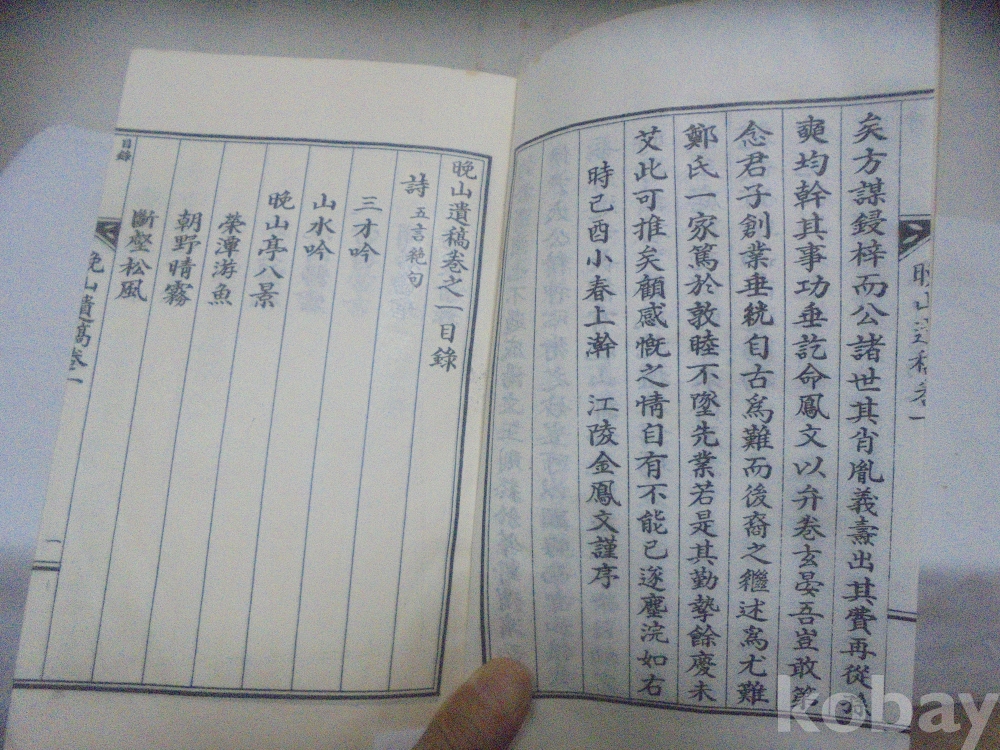 矣方謀鋟梓而公諸世其肖胤義壽出其費再從
奭均幹其事功垂訖命鳳文以弁卷玄晏吾豈敢第
念君子創業垂統自古爲難而後裔之繼述爲尤難
鄭氏一家篤於敦睦不墜先業若是其勤摯餘慶未
艾此可推矣顧感慨之情自有不能已遂塵浣如右
時己酉小春上澣 江陵金鳳文謹序
晚山遺稿卷一
晚山遺稿卷之一目錄
詩 五言絕句
三才吟
山水吟
晚山亭八景
榮潭游魚
朝野晴霧
斷壑松風
目錄
晚山遺稿卷一
一
kobay